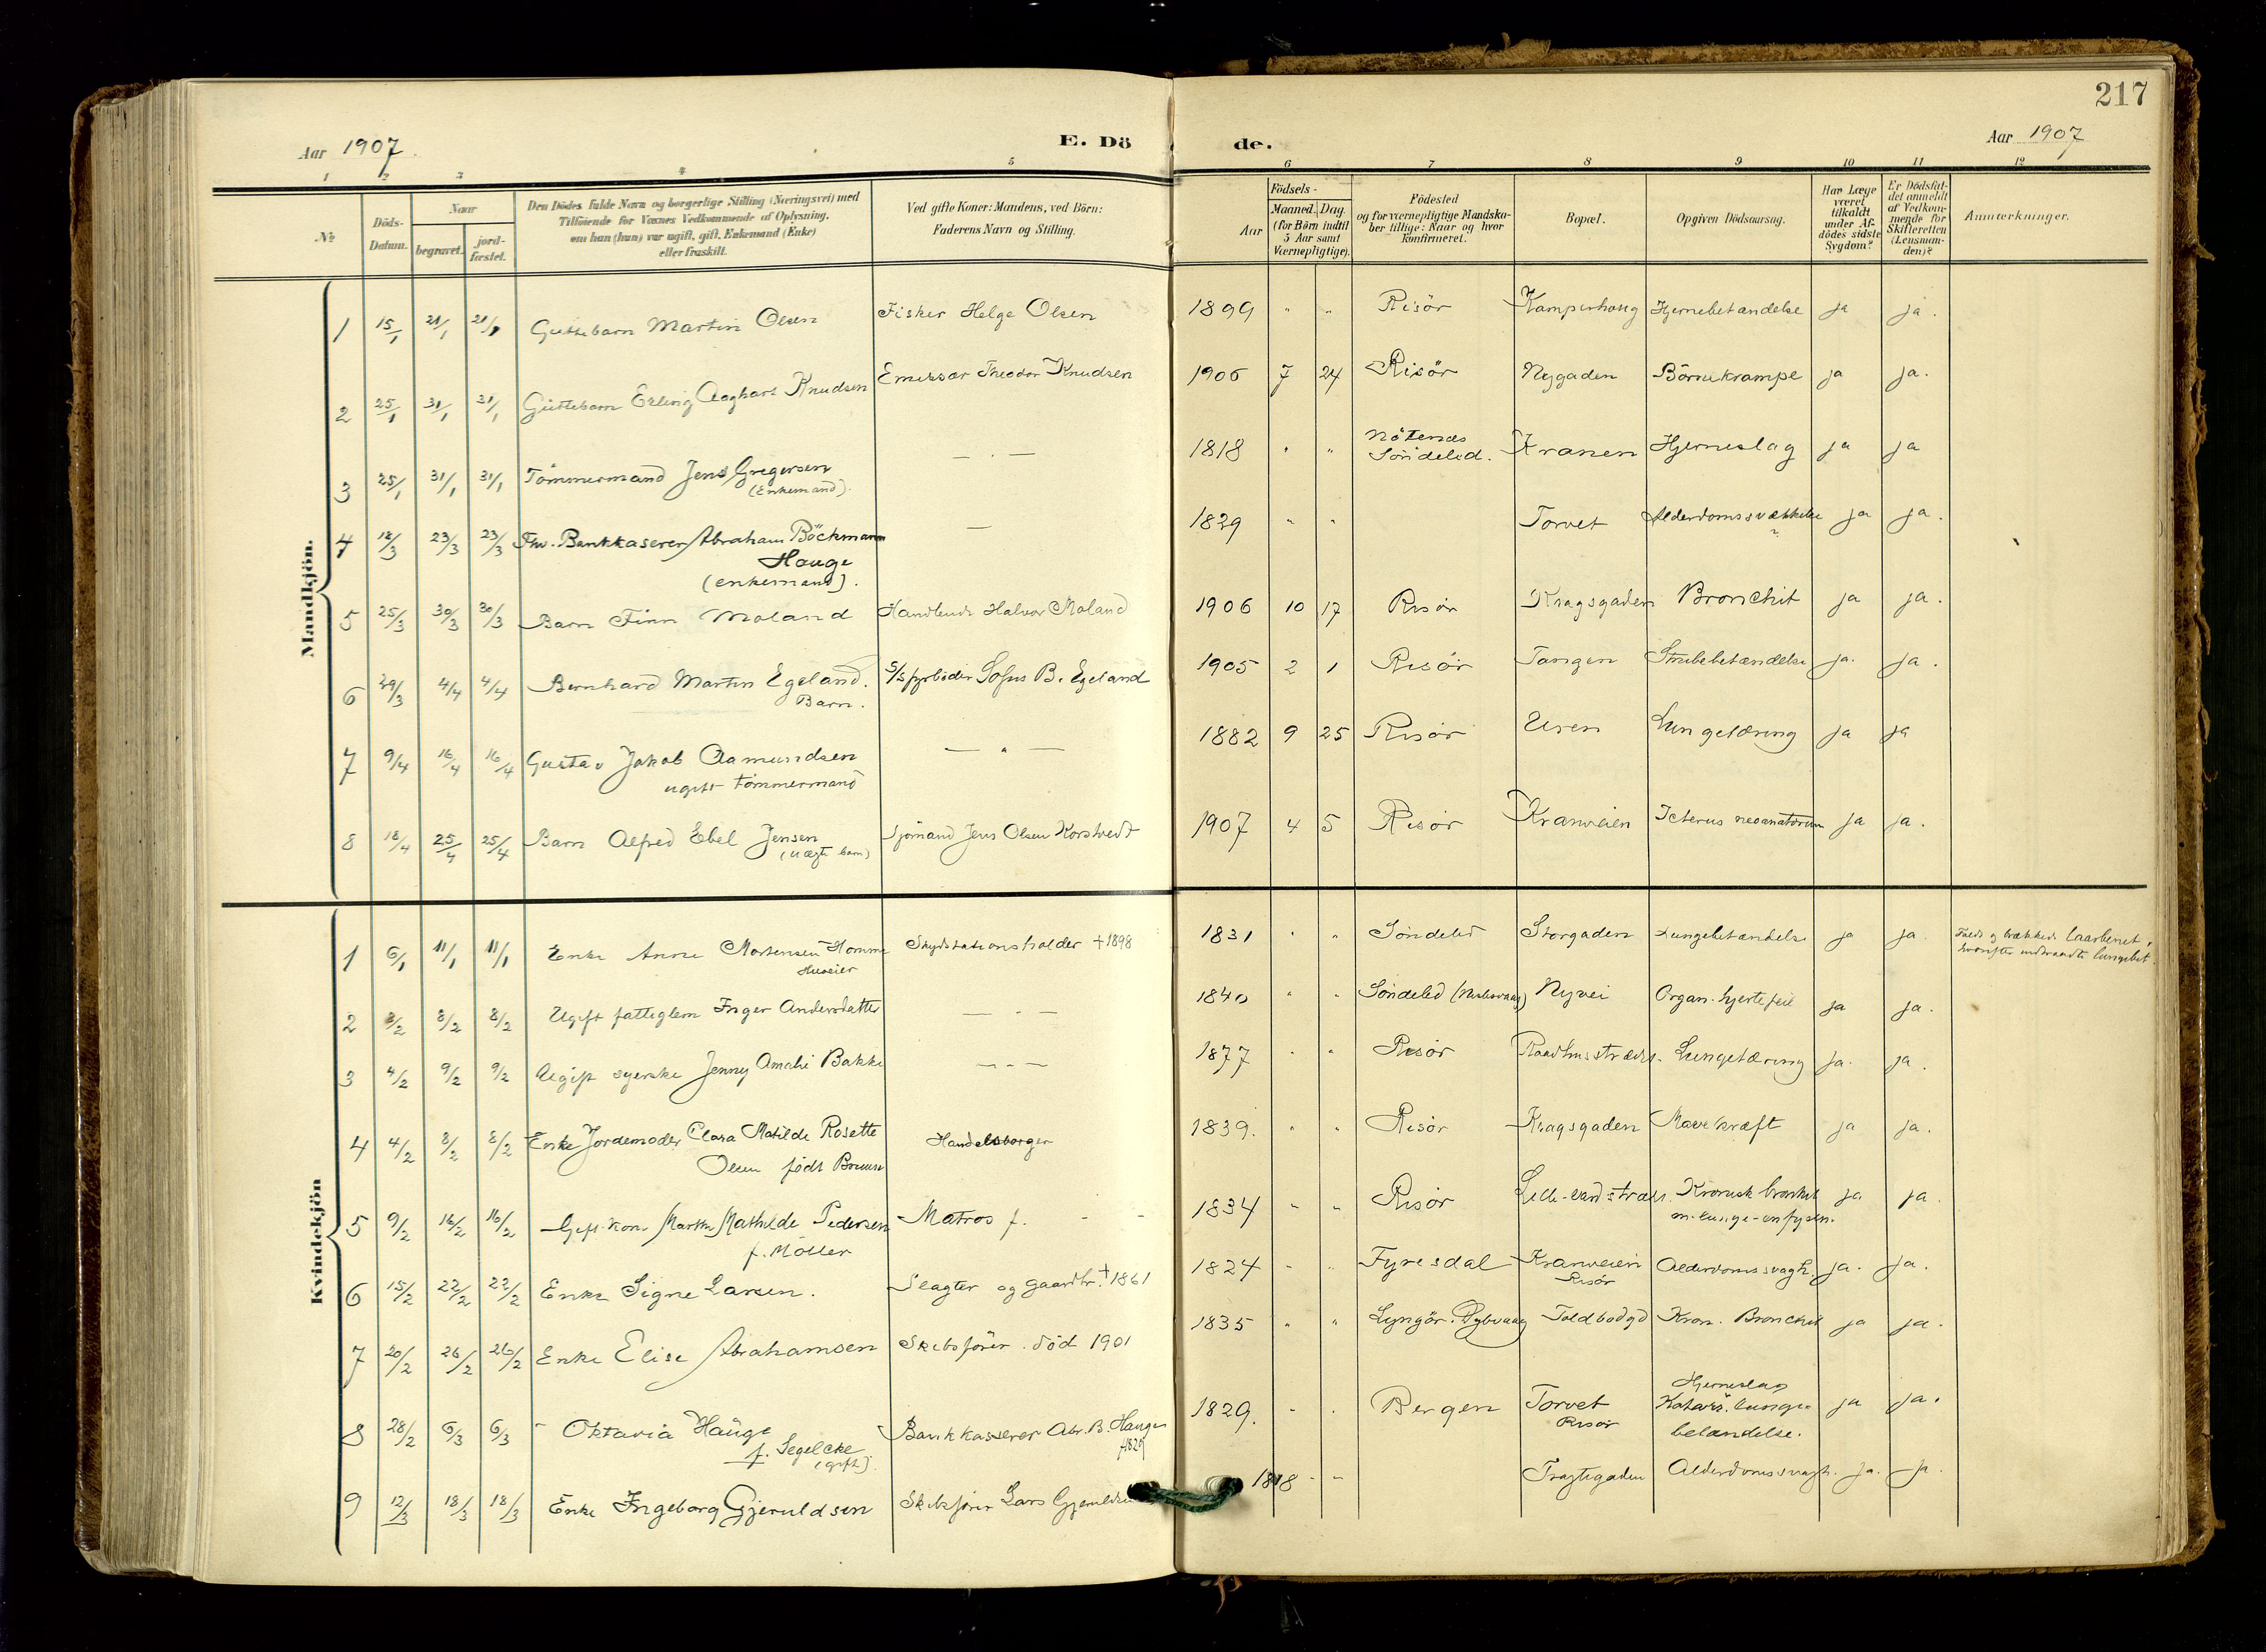 217
Aar 1907.
E. Dö
de.
Aar 1907
1 2 3 4 5 6 7 8 9 10 11 12
№
Döds-
Datum.
Naar
begravet.
jord-
fæstet.
Den Dödes fulde Navn og borgerlige Stilling (Næringsvei) med
Tilföiende for Voxnes Vedkommende af Oplysning,
om han (hun) var ugift, gift, Enkemand (Enke)
eller fraskilt.
Ved gifte Koner: Mandens, ved Börn:
Faderens Navn og Stilling.
Födsels-
Aar
Maaned. Dag.
(for Börn indtil
5 Aar samt
Værnepligtige).
Födested
og for værnepligtige Mandska-
ber tillige: Naar og hvor
konfirmeret.
Bopæl.
Opgiven Dödsaarsag.
Har Læge
været
tilkaldt
under Af-
dödes sidste
Sygdom?
Er Dödsfal-
det anmeldt
af Vedkom-
mende for
Skifteretten
(Lensman-
den)?
Anmærkninger.
Mandkjön.
1 15/1 21/1 21/1 Guttebarn Martin Olsen Fisker Helge Olsen 1899 " " Risör Kamperhoug Hjernebetændelse ja ja.
2 25/1 31/1 31/1 Guttebarn Erling Aaghart Knudsen Emissær Theodor Knudsen 1906 7 24 Risör Nygaden Börnekrampe ja ja.
3 25/1 31/1 31/1 Tömmermand Jens Gregersen — . — 1818 " " Nötenæs Kranen Hjerneslag ja ja
(Enkemand). Söndeled.
4 18/3 23/3 23/3 Fhv. Bankkaserer Abraham Böckmann — 1829 " " Torvet Alderdomssvækkelse ja ja.
Hauge
(enkemand).
5 25/3 30/3 30/3 Barn Finn Moland Handlende Halvor Moland 1906 10 17 Risör Kragsgaden Bronchit ja ja.
6 29/3 4/4 4/4 Bernhard Martin Egeland. S/S fyrböder Sofus B. Egeland 1905 2 1 Risör Tangen Strubebetændelse ja. ja.
Barn.
7 9/4 16/4 16/4 Gustav Jakob Aamundsen — " — 1882 9 25 Risör Uren Lungetæring ja ja
ugift tömmermand
8 18/4 25/4 25/4 Barn Alfred Ebel Jensen Sjömand Jens Olsen Korstvedt 1907 4 5 Risör Kranveien Icterus neoanatorum ja ja.
(uægte barn)
Kvindekjön
1 6/1 11/1 11/1 Enke Anne Mortensen Homme Skydsstationsholder † 1898 1831 " " Söndeled Storgaden Lungebetændelse ja ja. Faldt og brækkede laarbenet,
Huseier hvorefter indtraadte lungebet.
2 3/2 8/2 8/2 Ugift fattiglem Inger Andersdatter — " — 1840 " " Söndeled Nyvei Organ. hjertefeil ja ja.
3 4/2 9/2 9/2 Ugift syerske Jenny Amalie Bakke — " — 1877 " " Risör Raadhusstrædet. Lungetæring ja. ja.
4 4/2 8/2 8/2 Enke Jordemoder Clara Matilde Rosette Handelsborger 1839. " " Risör Kragsgaden Mavekræft ja ja.
Olsen födt Bruun
5 9/2 16/2 16/2 Gift kone Marthe Mathilde Pedersen Matros f. - - 1834 " " Risör Kronisk bronkit ja ja.
f. Möller m. lunge-emfysem.
6 15/2 22/2 22/2 Enke Signe Larsen. Slagter og gaardbr. † 1861 1824 " " Fyresdal Kranveien Alderdomssvagh. ja. ja.
Risör
7 20/2 26/2 26/2 Enke Elise Abrahamsen Skibsförer. död 1901 1835 " " Lyngör. Dybvaag Toldbodgd Kron. Bronchit ja ja.
8 28/2 6/3 6/3 - Oktavia Hauge Bankkasserer Abr. B. Hauge 1829. " " Bergen Torvet Hjerneslag ja ja.
f. Segelcke f 1829 Risör Katarr. lunge-
(gift). betændelse.
9 12/3 18/3 18/3 Enke Ingeborg Gjeruldsen Skibsförer Lars Gjeruldsen 1818 " " Tragtegaden Alderdomssvagh. ja. ja.